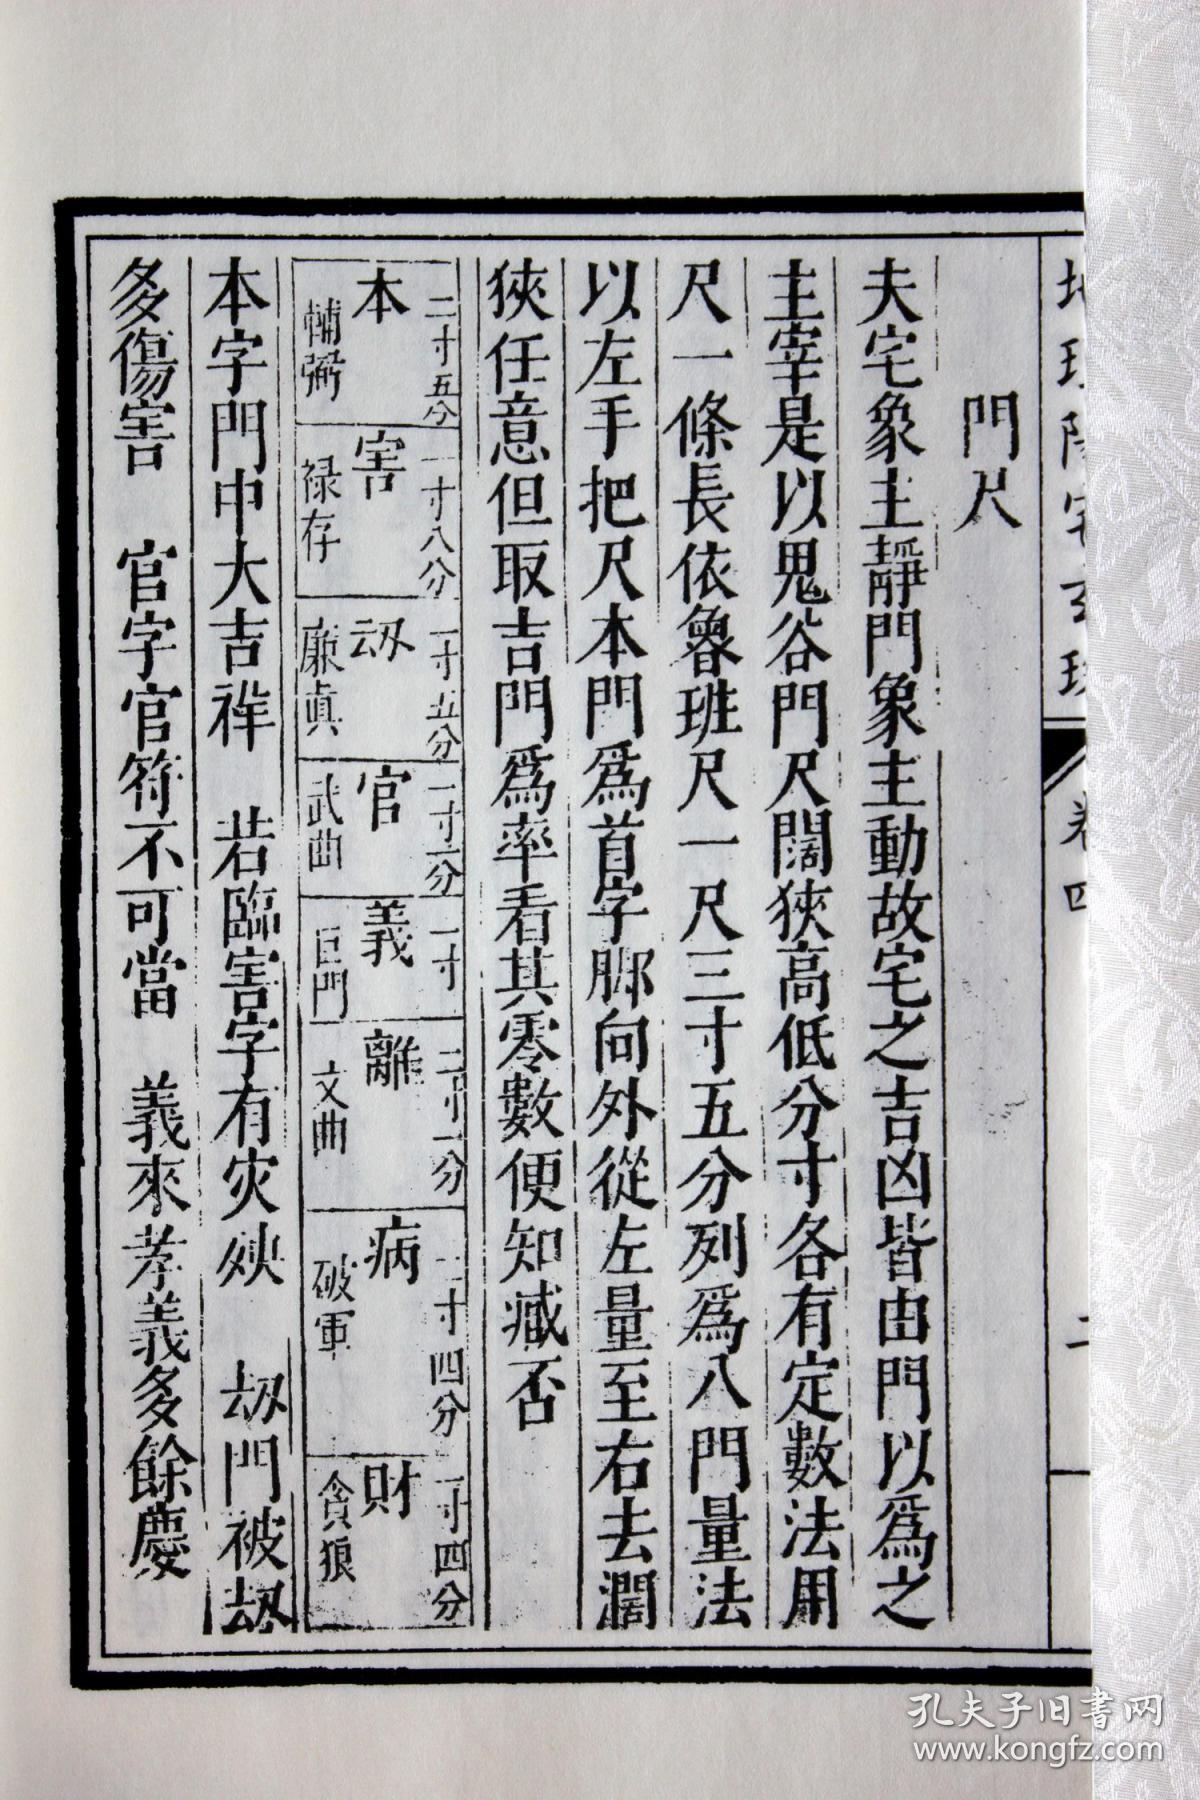 卷四
門尺
夫宅象主靜門象主動故宅之吉凶皆由門以爲之
主宰是以鬼谷門尺闊狹高低分寸各有定數法用
尺一條長依魯班尺一尺三寸五分列爲八門量法
以左手把尺本門爲首字脚向外從左量至右去濶
狹任意但取吉門爲率看其零數便知臧否
二寸五分 本 輔弼
一寸八分 害 禄存
一寸五分 刼 廉眞
官 武曲
一寸 義 巨門
二寸一分 離 文曲
寸四分 病 破軍
一寸四分 財 貪狼
本字門中大吉祥 若臨害字有灾殃 刼門被刼
多傷害 官字官符不可當 義來孝義多餘慶
孔夫子旧书网
www.kongfz.com